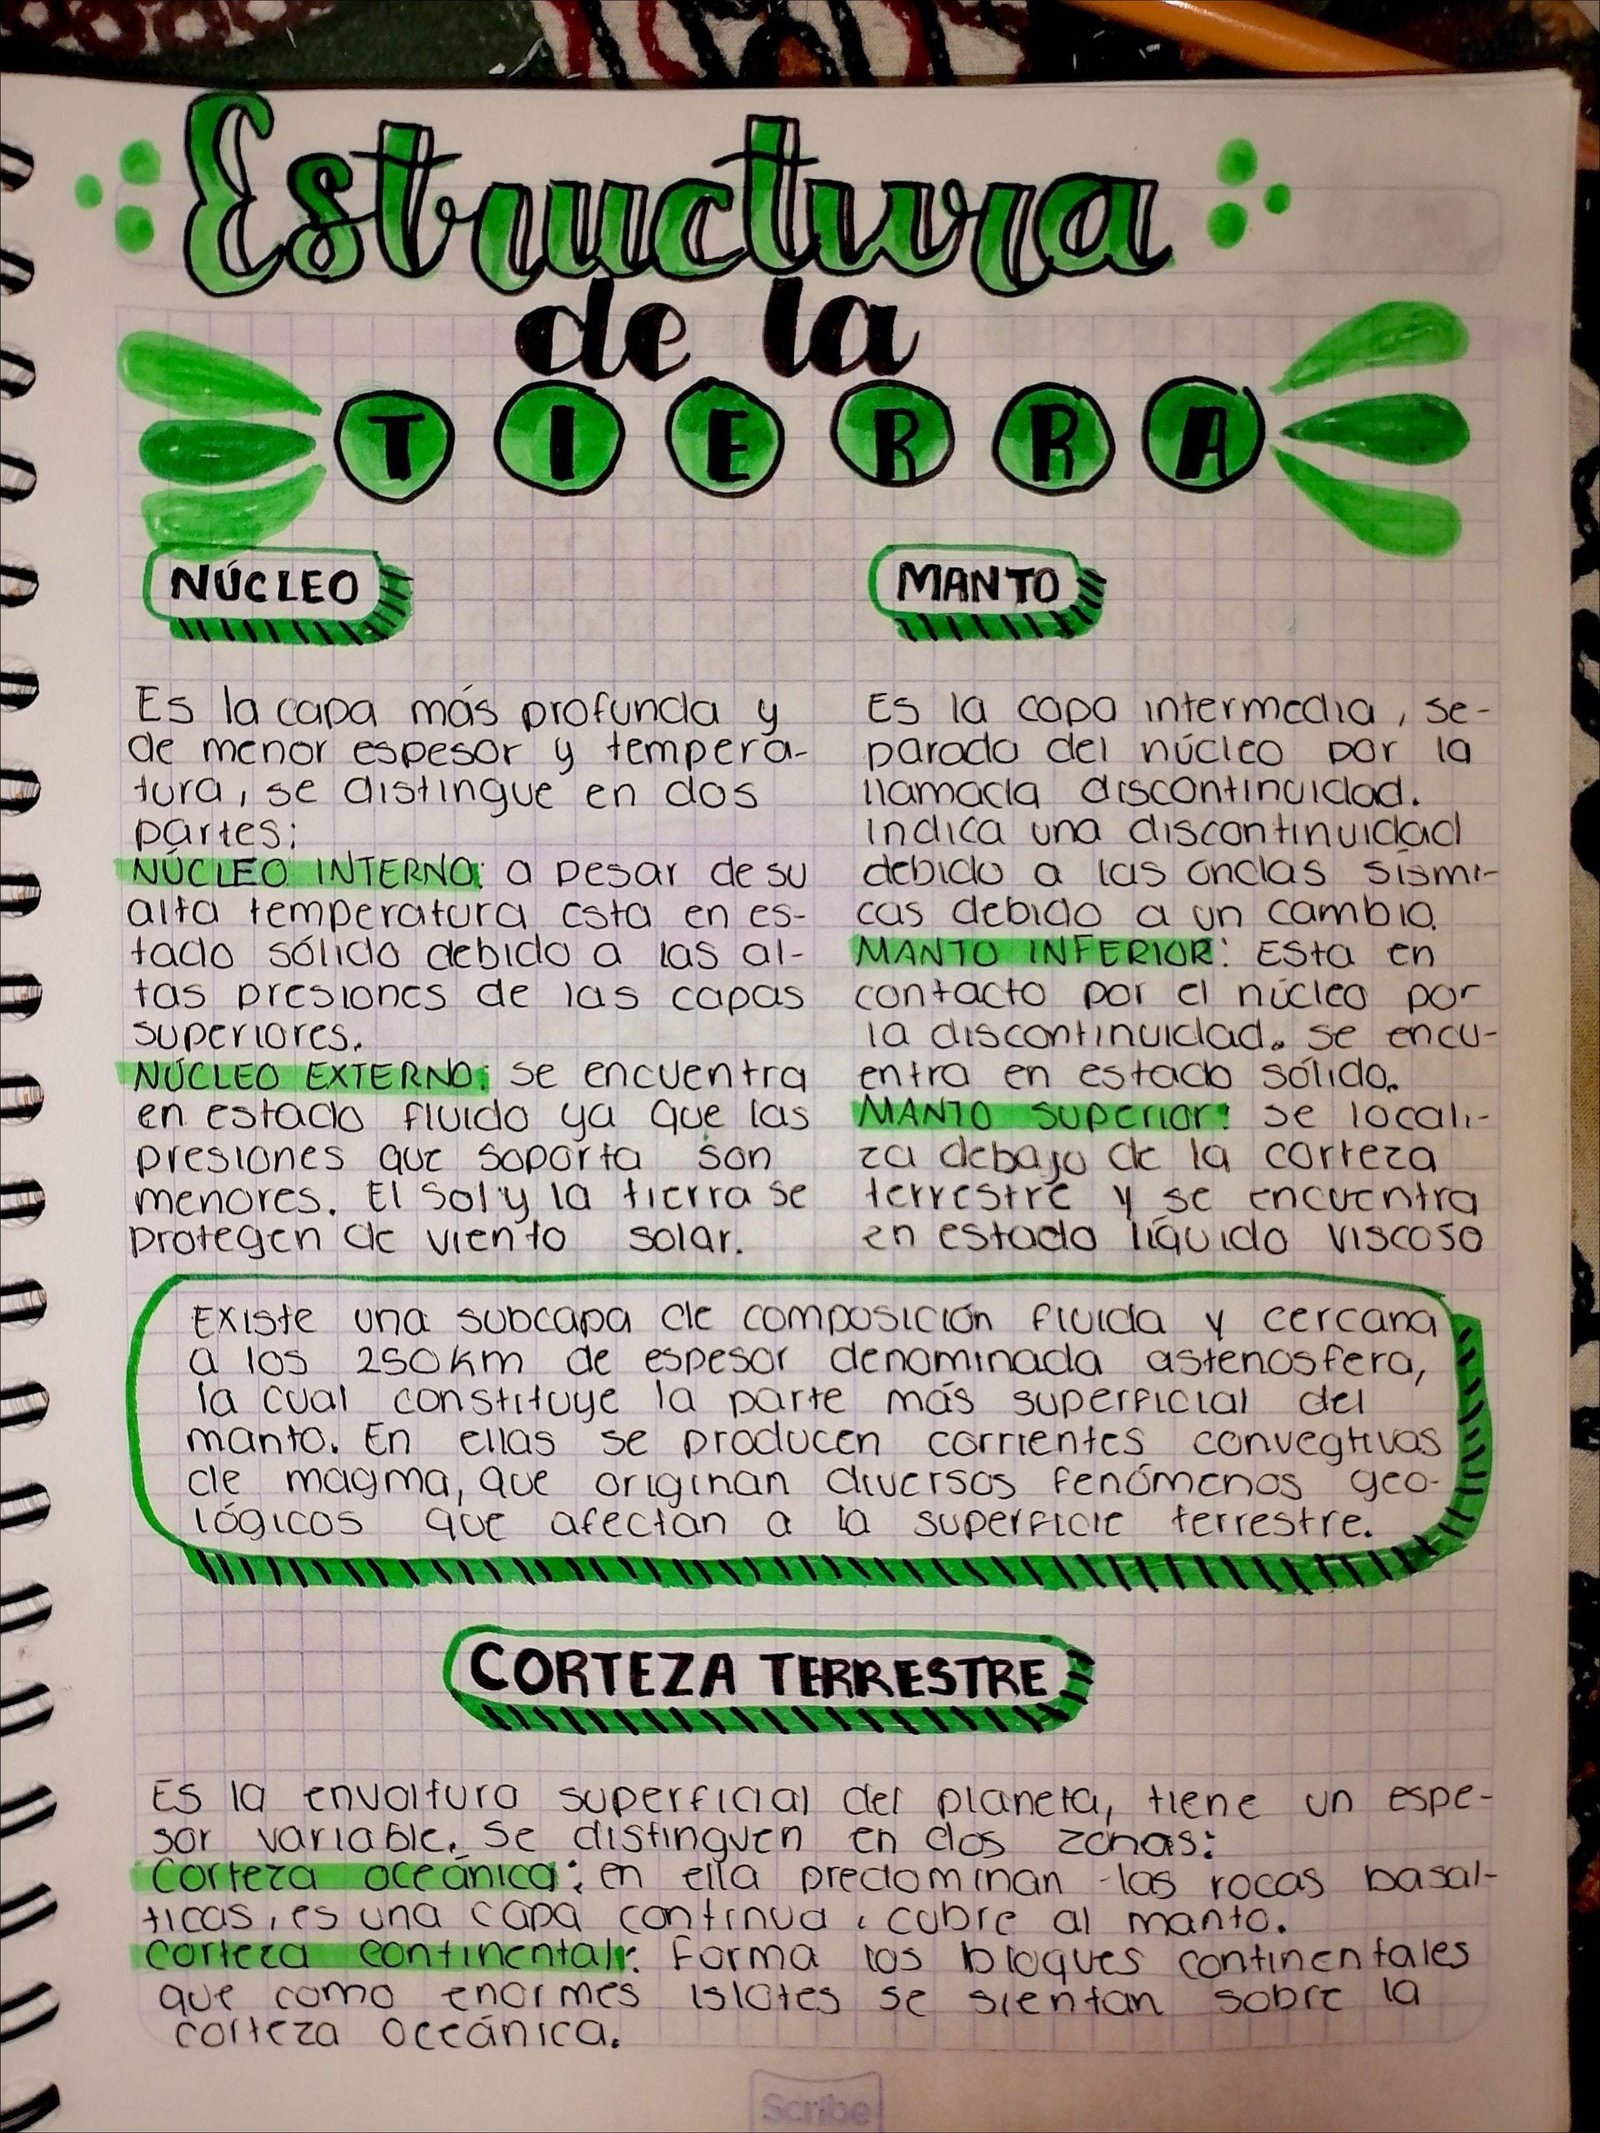 Estructura
de la
TIERRA
NÚCLEO
Es la capa más profunda y
de menor espesor y tempera-
tura, se distingue en dos
partes:
NÚCLEO INTERNO: a pesar de su
alta temperatura esta en es-
tado sólido debido a las al-
tas presiones de las capas
superiores.
NÚCLEO EXTERNO: se encuentra
en estado fluido ya que las
presiones que soporta son
menores. El sol y la tierra se
protegen de viento solar.
MANTO
Es la capa intermedia, se-
parada del núcleo por la
llamada discontinuidad.
Indica una discontinuidad
debido a las ondas sísmi-
cas debido a un cambio.
MANTO INFERIOR: Esta en
contacto por el núcleo por
la discontinuidad. se encu-
entra en estado sólido.
MANTO superior: se locali-
za debajo de la corteza
terrestre y se encuentra
en estado líquido viscoso
Existe una subcapa de composición fluida y cercana
a los 250km de espesor denominada astenosfera,
la cual constituye la parte más superficial del
manto. En ellas se producen corrientes convegtivas
de magma, que originan diversos fenómenos geo-
lógicos que afectan a la superficie terrestre.
CORTEZA TERRESTRE
Es la envoltura superficial del planeta, tiene un espe-
sor variable. Se distinguen en dos zonas:
Corteza oceánica: en ella predominan las rocas basal-
ticas, es una capa continua, cubre al manto.
Corteza continental: Forma los bloques continentales
que como enormes islotes se sientan sobre la
corteza oceánica.
Scribe